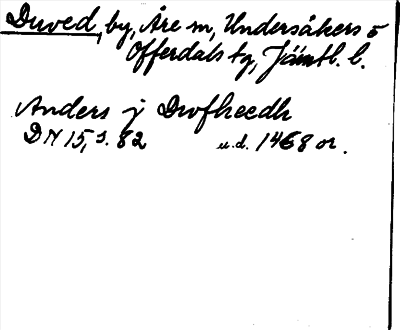 Duved, by, Åre sn, Undersåkers o
Offerdals tg, Jämtl. l.
Anders j Dwfheedh
DN 15, s. 82 u.d. 1468 or.